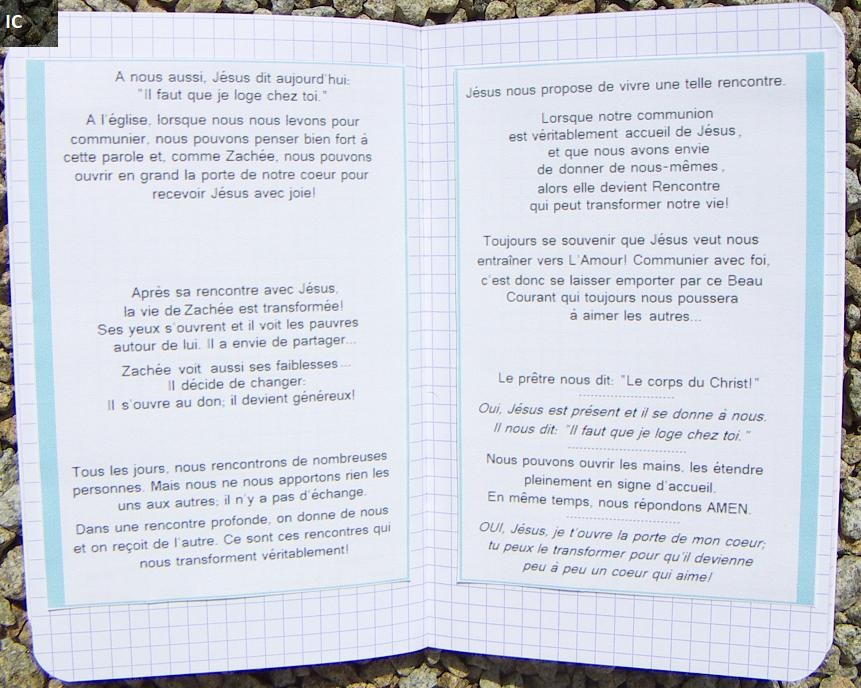 IC
A nous aussi, Jésus dit aujourd'hui:
"Il faut que je loge chez toi."
A l'église, lorsque nous nous levons pour
communier, nous pouvons penser bien fort à
cette parole et, comme Zachée, nous pouvons
ouvrir en grand la porte de notre coeur pour
recevoir Jésus avec joie!
Après sa rencontre avec Jésus,
la vie de Zachée est transformée!
Ses yeux s'ouvrent et il voit les pauvres
autour de lui. Il a envie de partager...
Zachée voit aussi ses faiblesses...
Il décide de changer:
Il s'ouvre au don; il devient généreux!
Tous les jours, nous rencontrons de nombreuses
personnes. Mais nous ne nous apportons rien les
uns aux autres; il n'y a pas d'échange.
Dans une rencontre profonde, on donne de nous
et on reçoit de l'autre. Ce sont ces rencontres qui
nous transforment véritablement!
Jésus nous propose de vivre une telle rencontre.
Lorsque notre communion
est véritablement accueil de Jésus,
et que nous avons envie
de donner de nous-mêmes,
alors elle devient Rencontre
qui peut transformer notre vie!
Toujours se souvenir que Jésus veut nous
entraîner vers L'Amour! Communier avec foi,
c'est donc se laisser emporter par ce Beau
Courant qui toujours nous poussera
à aimer les autres...
Le prêtre nous dit: "Le corps du Christ!"
Oui, Jésus est présent et il se donne à nous.
Il nous dit: "Il faut que je loge chez toi."
Nous pouvons ouvrir les mains, les étendre
pleinement en signe d'accueil.
En même temps, nous répondons AMEN.
OUI, Jésus, je t'ouvre la porte de mon coeur;
tu peux le transformer pour qu'il devienne
peu à peu un coeur qui aime!